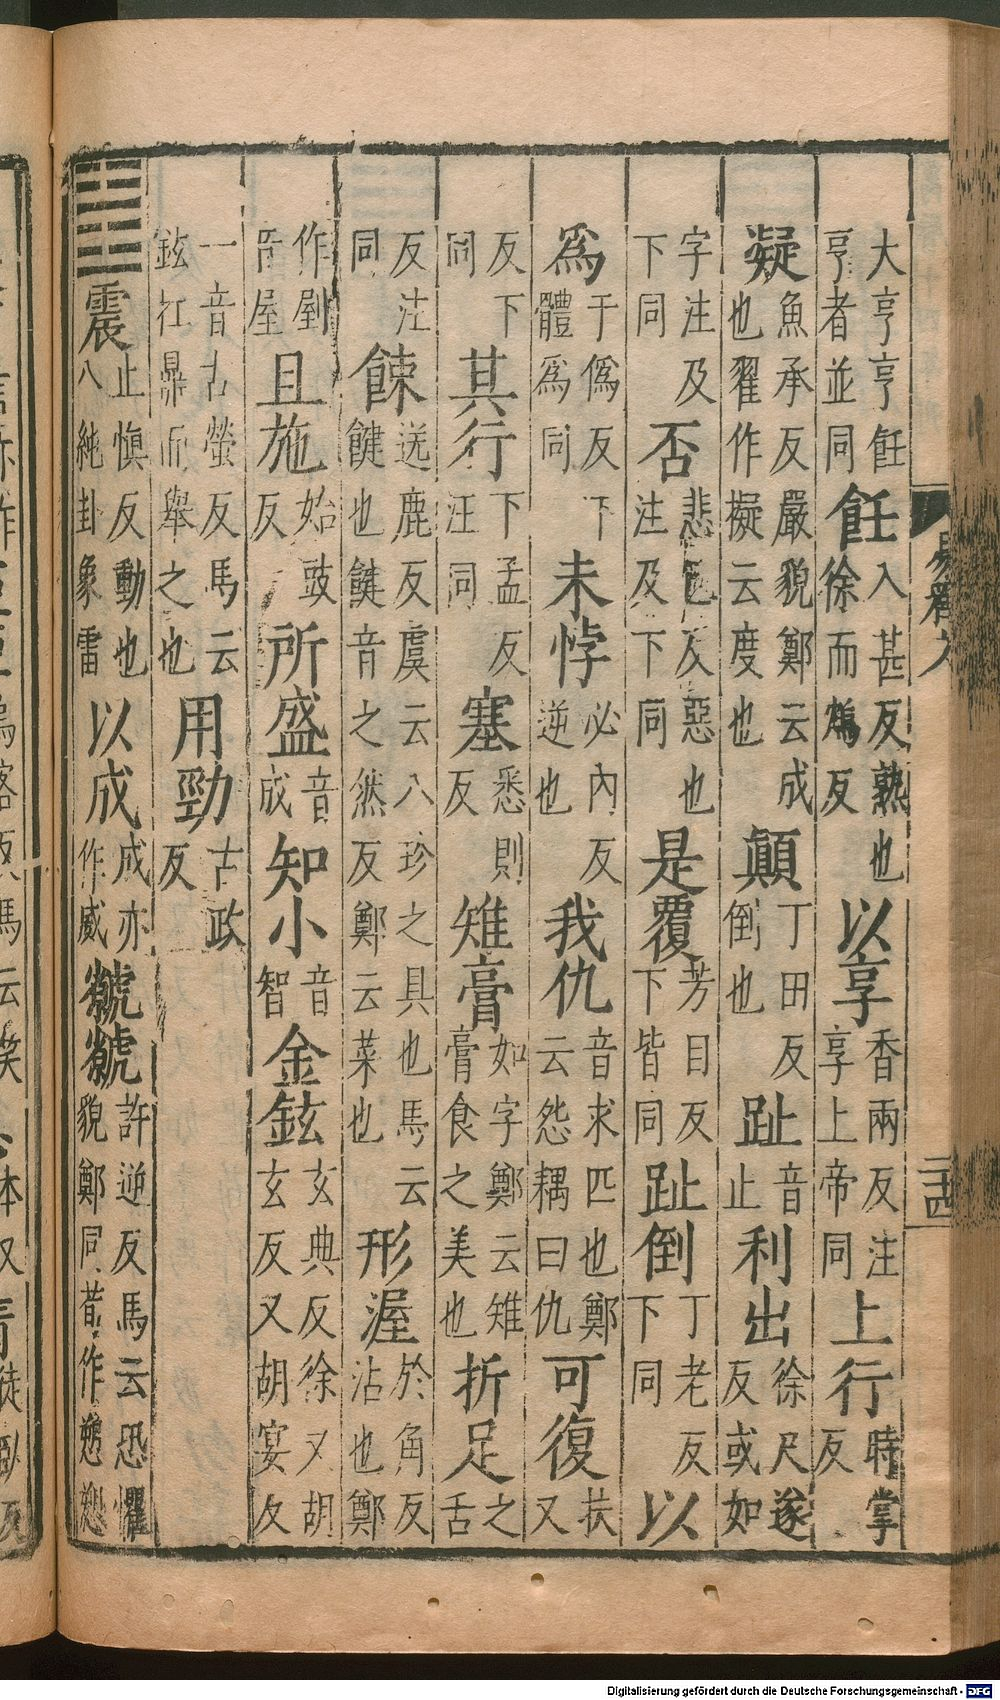 大亨亨飪亨者並同飪入甚反熟也徐而鴆反以享香兩反注享上帝同上行時掌反
凝魚承反嚴貌鄭云成也翟作擬云度也顛丁田反倒也趾音止利出徐尺遂反或如
字注及下同否悲已反惡也注及下同是覆芳目反下皆同趾倒丁老反下同以
爲于僞反下體爲同未悖必內反逆也我仇音求匹也鄭云怨耦曰仇可復扶又
反下同其行下孟反注同塞悉則反雉膏如字鄭云雉膏食之美也折足之舌
反注同餗送鹿反虞云八珍之具也馬云饘也饘音之然反鄭云菜也形渥於角反沾也鄭
作剭音屋且施始豉反所盛音成知小音智金鉉玄典反徐又胡玄反又胡宴反
一音古螢反馬云鉉扛鼎而舉之也用勁古政反
䷲震止慎反動也八純卦象雷以成成亦作威虩虩許逆反馬云恐懼貌鄭同荀作愬愬
Digitalisierung gefördert durch die Deutsche Forschungsgemeinschaft - DFG